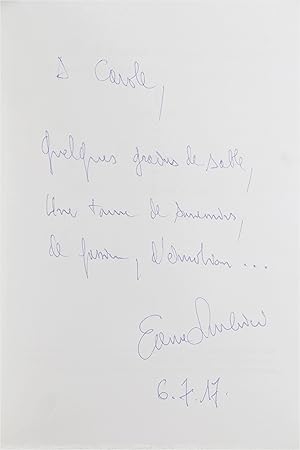 A Carole,
Quelques grains de sable,
Une tonne de souvenirs,
de passion, d'émotion...
6.7.17.